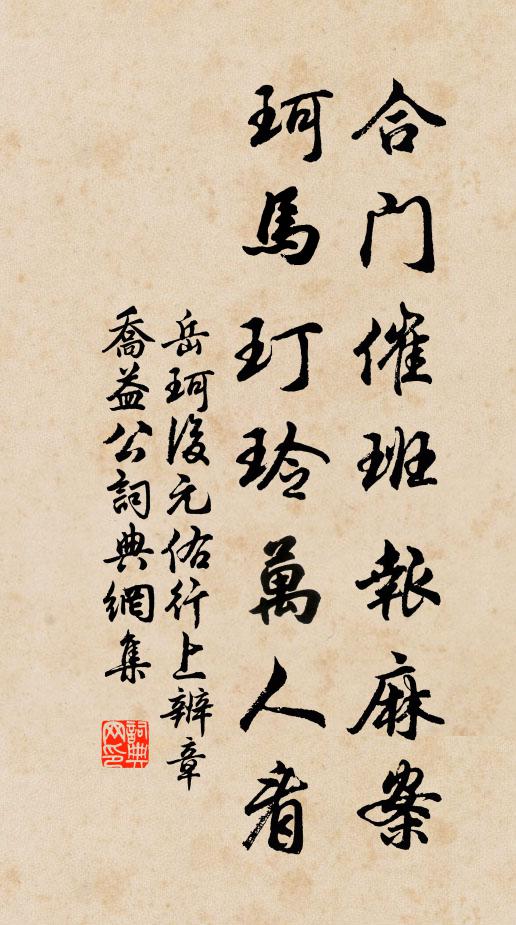 合門催班報麻案
珂馬玎玲萬人看
岳珂後元佑行上辨章
喬益公詞典網集
詞典網印